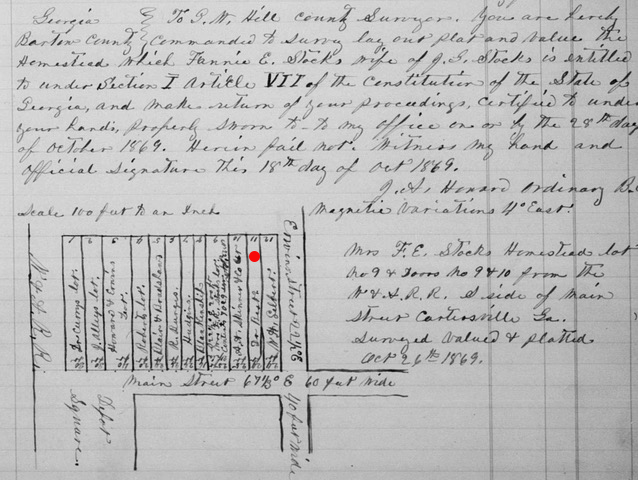 Georgia } To G. W. Hill county Surveyor. You are hereby
Bartow County } Commanded to survey lay out plat and value the
Homestead which Fannie E. Stocks wife of J. G. Stocks is entitled
to under Section I Article VII of the Constitution of the State of
Georgia, and make return of your proceedings, certified to under
your hands, properly sworn to to my office on or by the 28th day
of October 1869. Herein fail not. Witness my hand and
Official Signature this 18th day of Oct 1869.
J. A. Howard Ordinary B. C
Scale 100 feet to an Inch
Magnetic Variations 4° East.
Mrs F. E. Stocks Homestead lot
No 9 & Doors No 9 & 10 from the
W & A. R. R. S side of main
Street Cartersville Ga.
Surveyed Valued & platted
Oct 26th 1869.
W & A. R. R.
1 2 3 4 5 6 7 8 9
11
lot.
lot.
Howard &
lot
Roberts lot.
Erwin Street
Main Street 67½° E 60 feet wide
Depot
Square
40 feet wide